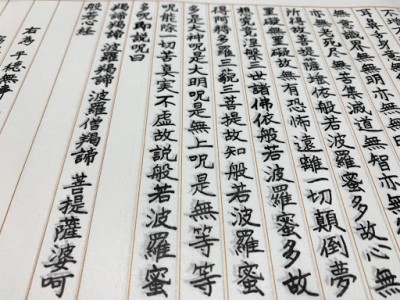 不増不
耳鼻舌身意無
無意識界無無明亦無
亦無老死尽無苦集滅道無智亦無
所得故菩提薩埵依般若波羅蜜多故心無
罣礙無罣礙故無有恐怖遠離一切顛倒夢
想究竟涅槃三世諸佛依般若波羅蜜多故
得阿耨多羅三藐三菩提故知般若波羅蜜
多是大神呪是大明呪是無上呪是無等等
呪能除一切苦真実不虚故説般若波羅蜜
多呪即説呪曰
羯諦羯諦 波羅羯諦 波羅僧羯諦 菩提薩婆呵
般若心経
右為 平穏無事